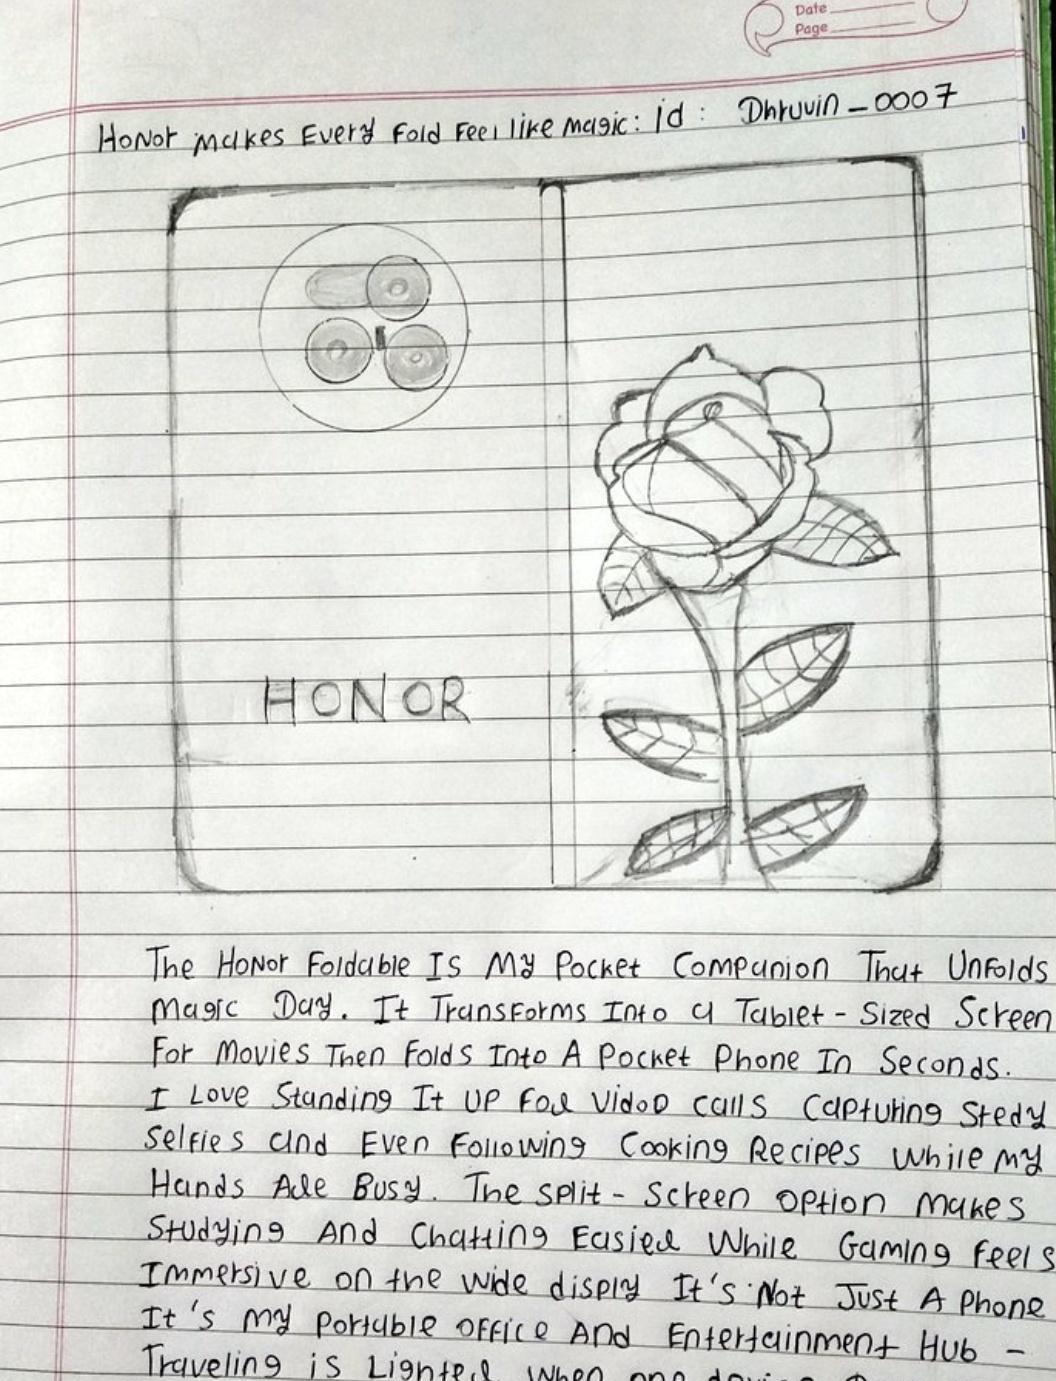 Date
Page
Honor makes Every Fold Feel like magic: id: Dhruvin_0007
HONOR
The Honor Foldable Is My Pocket Companion That Unfolds
Magic Day. It Transforms Into a Tablet-Sized Screen
For Movies Then Folds Into A Pocket Phone In Seconds.
I Love Standing It UP For Vidoo calls Capturing Stedy
Selfies and Even Following Cooking Recipes While my
Hands Are Busy. The split-screen option makes
Studying And Chatting Easier While Gaming feels
Immersive on the wide disply It's Not Just A Phone
It's my portable office And Entertainment Hub -
Traveling is Lighter When one